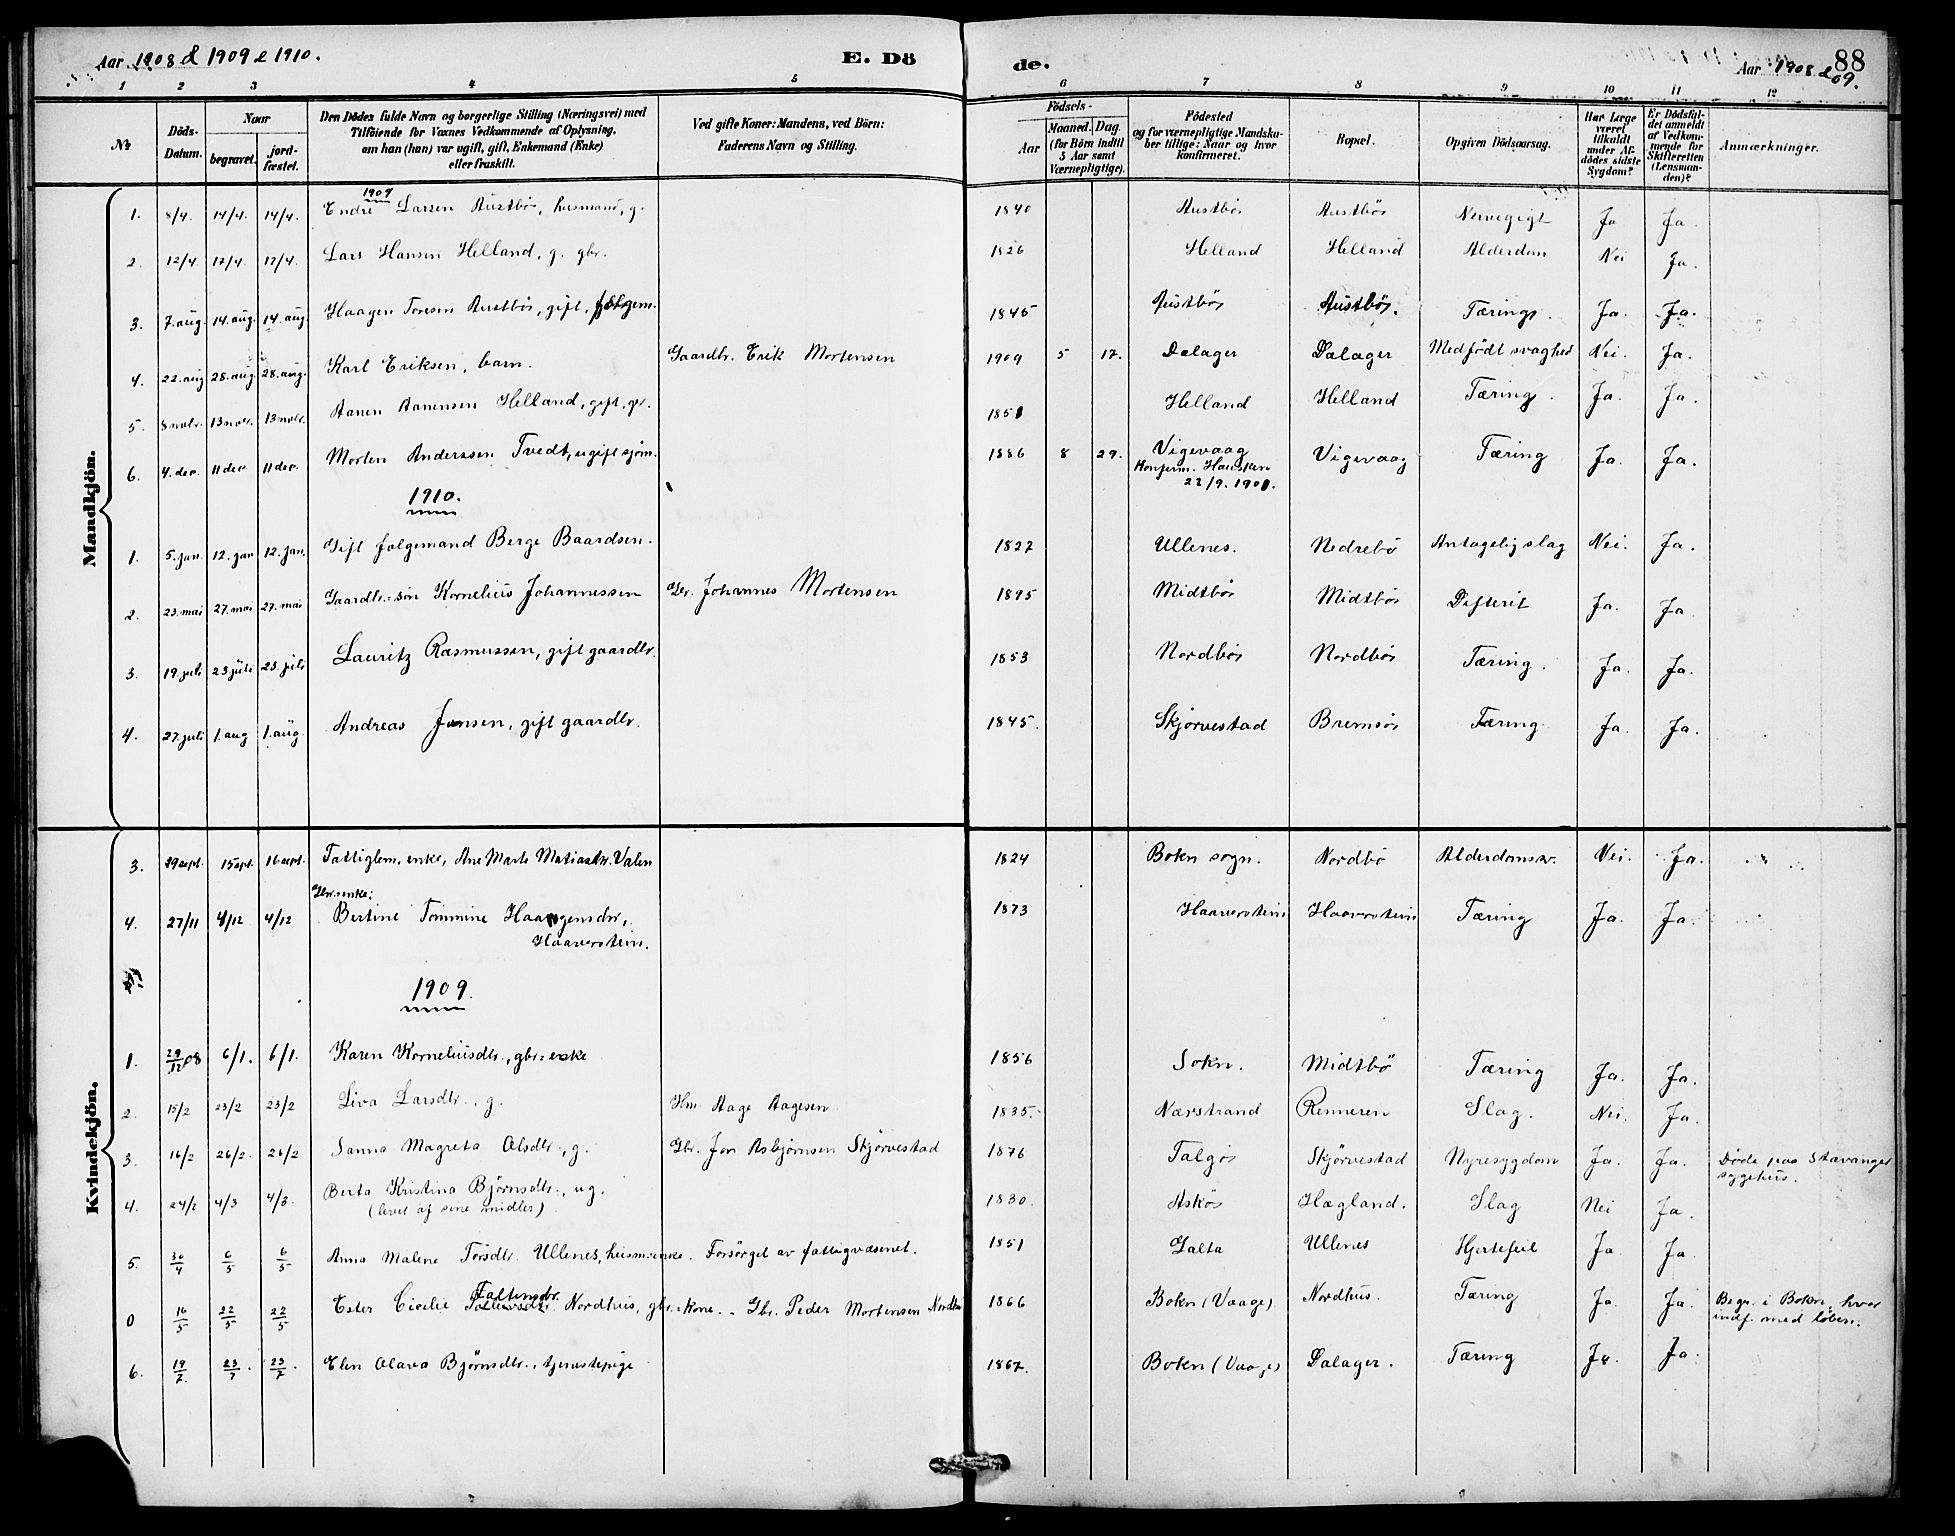 Aar 1908 & 1909 & 1910. E. Dö de. Aar 1908 & 09. 88
1 2 3 4 5 6 7 8 9 10 11 12
No Döds-Datum. Naar begravet. jord-fæstet. Den Dödes fulde Navn og borgerlige Stilling (Næringsvei) med Tilföiende for Voxnes Vedkommende af Oplysning, om han (hun) var ugift, gift, Enkemand (Enke) eller fraskilt. Ved gifte Koner: Mandens, ved Börn: Faderens Navn og Stilling. Födsels- Aar Maaned. Dag. (for Börn indtil 5 Aar samt Værnepligtige). Födested og for værnepligtige Mandskaber tillige: Naar og hvor konfirmeret. Bopæl. Opgiven Dödsaarsag. Har Læge været tilkaldt under Afdödes sidste Sygdom? Er Dödsfaldet anmeldt af Vedkommende for Skifteretten (Lensmanden)? Anmærkninger.
Mandkjön.
1909
1. 8/4. 14/4. 14/4. Endre Larsen Austbø, husmand, g. 1840 Austbø Austbø Nervegigt Ja Ja.
2. 12/4. 17/4. 17/4. Lars Hansen Helland, g. gbr. 1826 Helland Helland Alderdom Nei Ja.
3. 7. aug. 14. aug. 14. aug. Haagen Toresen Austbø, gift, folgem. 1845 Austbø Austbø. Tærings. Ja. Ja.
4. 22. aug 28. aug. 28. aug. Karl Eriksen, barn. Gaardbr. Erik Mortensen 1909 5 17. Dalager Dalager Medfödt svaghed Nei. Ja.
5. 8 novbr. 13 novr. 13 novbr. Aanen Aanensen Helland, gift, gr. 1851 Helland Helland Tæring. Ja. Ja.
6. 4. der. 11 der. 11 der. Morten Anderssen Tvedt, ugift sjöm. 1886 8 29. Vigevaag Vigevaag Tæring Ja. Ja.
Konferm. Hausken
22/9. 1901.
1910.
1. 5. jan. 12. jan 12. jan. Gift folgemand Berge Baardsen. 1827 Ullenes. Nedrebö Antagelig slag Nei. Ja.
2. 23. mai 27. mai 27. mai Gaardbr.-sön Kornelius Johannessen Gbr. Johannes Mortensen 1895 Midtbø Midtbø Difterit Ja. Ja.
3. 19. juli 23 juli 23. juli Lauritz Rasmussen, gift gaardbr. 1853 Nordbø Nordbø Tæring. Ja. Ja.
4. 27. juli 1. aug 1. aug. Andreas Jensen, gift gaardbr. 1845. Skjørvestad Bremsø Tæring Ja. Ja.
Kvindekjön.
3. 15 sept. 16 sept. Fattiglem. enke, Ane Marte Valen 1824 Bokn sogn. Nordbö Alderdomssv. Nei. Ja.
Gbr. enke:
4. 27/11 4/12 4/12 Bertine Tommine Haagensdtr., 1873 Haaverstein Haaverstein Tæring Ja. Ja.
Haaverstein.
1909.
1. 29/12 08 6/1. 6/1. Karen Korneliusdtr., gbr.-enke 1856 Sokn. Midtbö Tæring Ja. Ja.
2. 15/2 23/2 23/2 Liva Larsdtr., g. Hm. Aage Aagesen 1835. Nærstrand Renneren Slag. Nei. Ja.
3. 16/2 26/2. 26/2 Sanna Magreta Olsdtr., g. Gbr. Jon Asbjørnsen Skjørvestad 1876 Talgø Skjørvestad Nyresygdom Ja. Ja. Døde paa Stavanger sygehus.
4. 24/2 4/3 4/3. Berta Kristina Björnsdtr., ug. 1830. Askø Hægland. Slag Nei Ja.
(levet af sine midler)
5. 30/4 6/5 6/5 Anna Malene Torsdtr. Ullenes, husm.enke. Forsörget av fattigvæsenet. 1851 Galta Ullenes Hjertefeil Ja Ja.
Faltinsdtr.
0 16/5 22/5 22/5 Ester Cicilie Nordhus, gbr.-kone. - Gbr. Peder Mortensen 1866 Bokn (Vaage) Nordhus. Tæring Ja. Ja. Begr. i Bokn, hvor indf. med løben.
6. 19/7. 23/7. 23/7 Elen Olava Bjørnsdtr., tjenestepige 1867. Bokn (Vaage) Dalager. Tæring Ja. Ja.